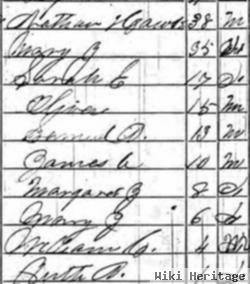 Nathan J 38 M
Mary J 35
Sarah E 17
Oliver 15 M
Samuel D. 13 M
James A 10 M
Margaret J 8
Mary J 6
William C. 4
Ruth R.
Wiki Heritage